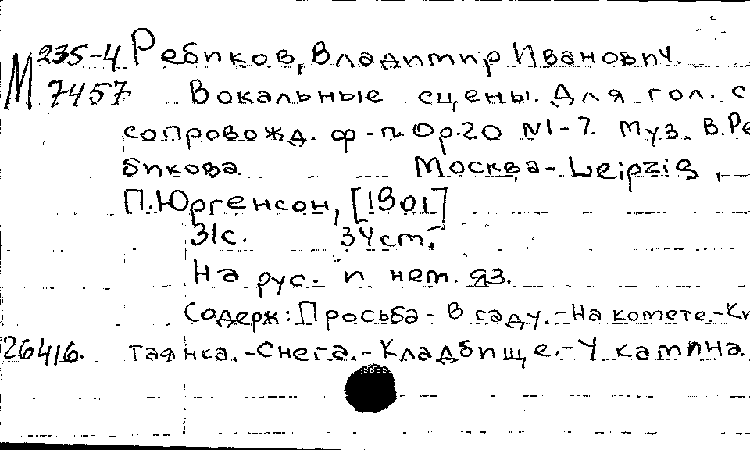 М 235-4 Ребиков, Владимир Иванович.
7457 Вокальные сцены. Для гол. с
сопровожд. ф-п. Op. 20 N1-7. Муз. В. Ре-
бикова Москва-Leipzig,
П. Юргенсон, [1901]
31с. 34cm.
На рус. и нем. яз.
Содерж: Просьба - В саду. - На комете. - Ки-
26416. таянка. - Снега. - Кладбище. - У камина.